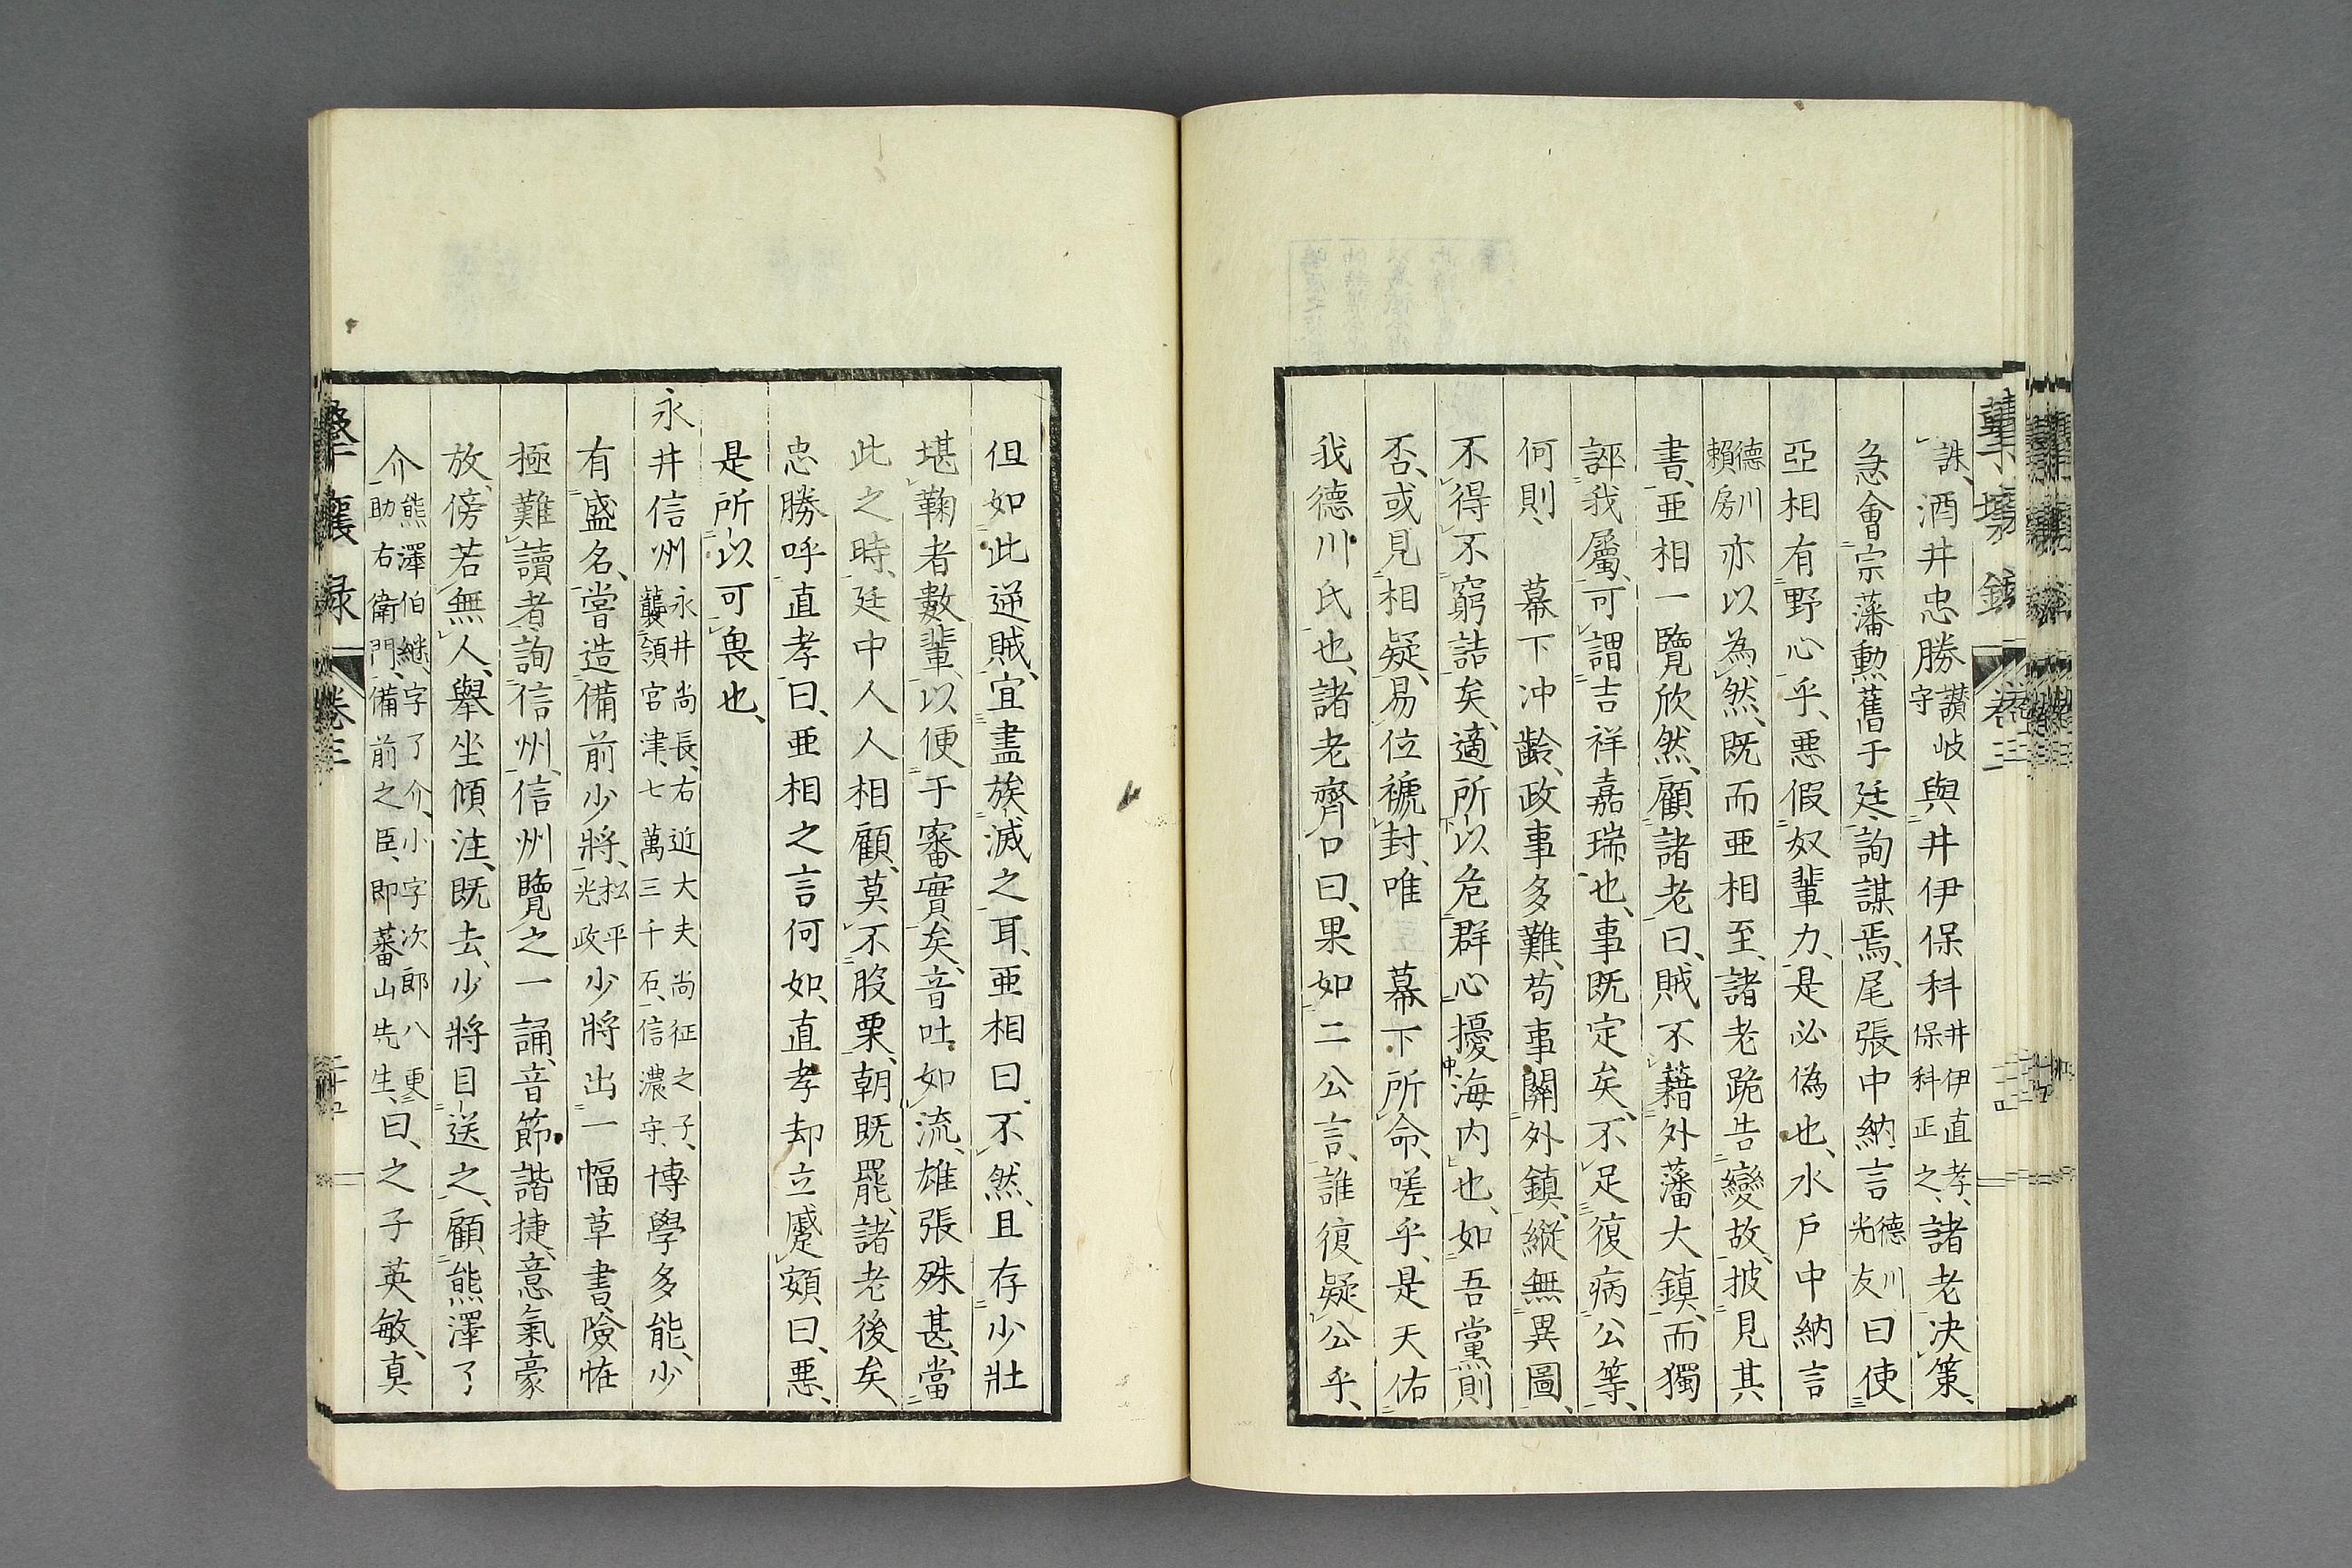 誅、酒井忠勝讃岐守與井伊保科井伊直孝、保科正之、諸老决策、
急會宗藩勲舊于廷、詢謀焉、尾張中納言德川光友曰使
亞相有野心乎、悪假奴輩力、是必偽也、水戸中納言
德川賴房亦以為然、既而亜相至、諸老跪告變故、披見其
書、亜相一覽欣然、顧諸老曰、賊不藉外藩大鎮、而獨
誣我屬、可謂吉祥嘉瑞也、事既定矣、不足復病公等、
何則、幕下冲齢、政事多難、苟事關外鎮、縦無異圖、
不得不窮詰矣、適所以危群心擾海内也、如吾黨則
否、或見相疑、易位褫封、唯幕下所命、嗟乎、是天佑
我德川氏也、諸老齊口曰、果如二公言、誰復疑公乎、
但如此逆賊、宜盡族滅之耳、亜相曰、不然、且存少壯
堪鞠者數輩、以便于審實矣、音吐如流、雄張殊甚、當
此之時、廷中人人相顧、莫不股栗、朝既罷、諸老後矣、
忠勝呼直孝曰、亜相之言何如、直孝却立蹙頞曰、悪、
是所以可畏也、
永井信州永井尚長、右近大夫尚征之子、襲領宮津、七萬三千石、信濃守、博學多能、少
有盛名、嘗造備前少將、松平光政少將出一幅草書、險恠
極難讀者、詢信州、信州覽之一誦、音節諧捷、意氣豪
放、傍若無人、舉坐傾注、既去、少將目送之、顧熊澤了
介熊澤伯継、字了介、小字次郎八、更助右衛門、備前之臣、即蕃山先生、曰、之子英敏、真
卷三